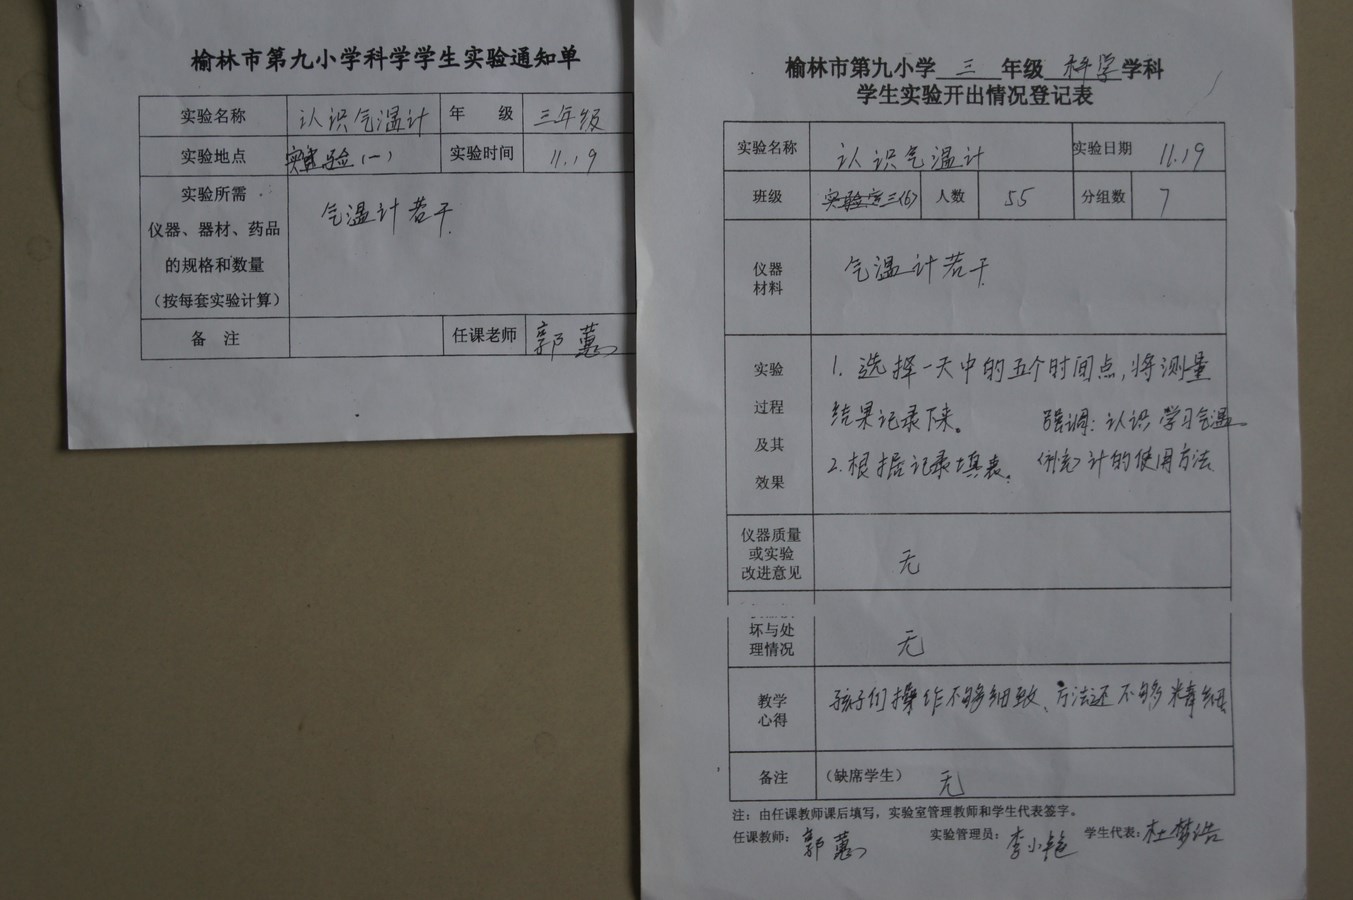 榆林市第九小学科学学生实验通知单
实验名称 认识气温计 年 级 三年级
实验地点 实验(一) 实验时间 11.19
实验所需
仪器、器材、药品
的规格和数量
(按每套实验计算)
气温计若干.
备 注 任课老师 郭蕙
榆林市第九小学 三 年级 科学 学科
学生实验开出情况登记表
实验名称 认识气温计 实验日期 11.19
班级 三(6) 人数 55 分组数 7
仪器
材料
气温计若干.
实验
过程
及其
效果
1. 选择一天中的五个时间点,将测量
结果记录下来。 强调:认识学习气温
2. 根据记录填表。 计的使用方法
仪器质量
或实验
改进意见
无
坏与处
理情况
无
教学
心得
孩子们操作不够细致、方法还不够精细
备注 (缺席学生) 无
注:由任课教师课后填写,实验室管理教师和学生代表签字。
任课教师: 郭蕙 实验管理员: 李小艳 学生代表: 杜梦浩